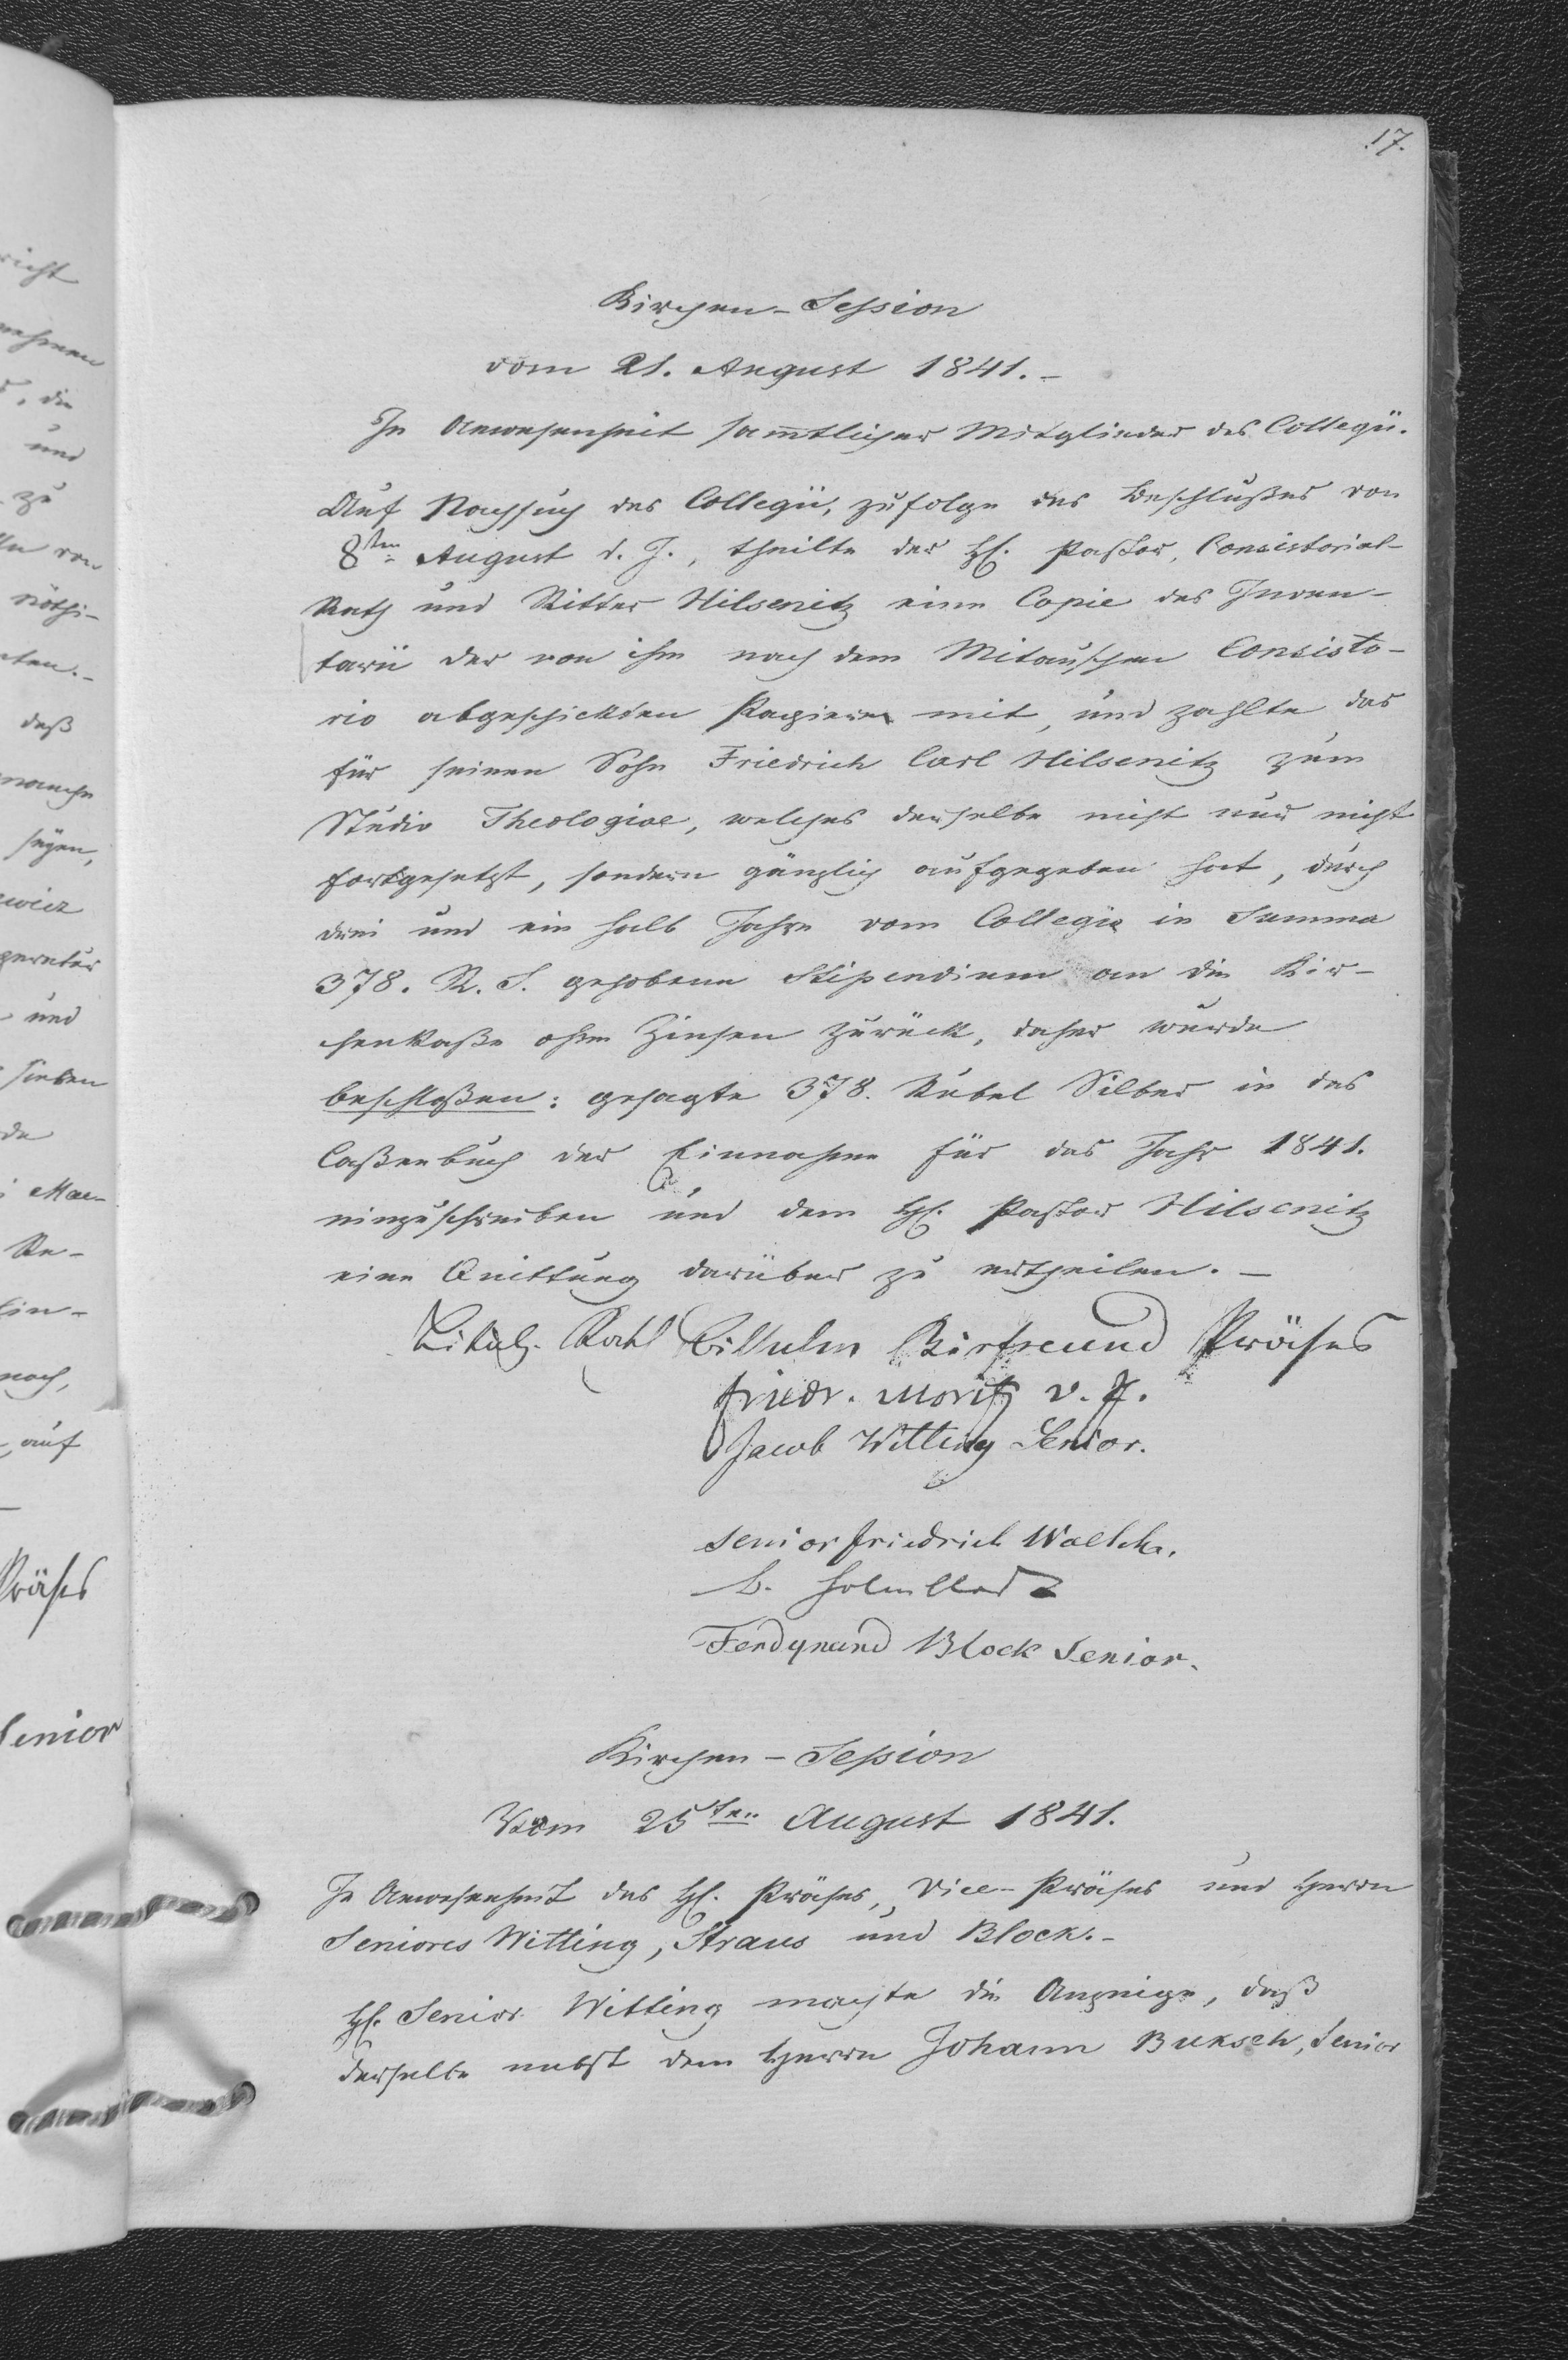 17.
Kirchen-Session
vom 21. August 1841.-
In Anwesenheit sam̄tlicher Mitglieder des Collegii.
Auf Nachsuch des Collegii, zufolge des Beschlußes von
8ten August d. J., theilte der H. Pastor, Consistorial-
Rath und Ritter Hilsenitz eine Copie des Inven-
tarii der von ihm nach dem Mitauschen Consisto-
rio abgeschickten Papiere mit, und zahlte das
für seinen Sohn Friedrich Carl Hilsenitz zum
Studio Theologiae, welches derselbe nicht nur nicht
fortgesetzt, sondern gänzlich aufgegeben hat, durch
drei und ein halb Jahre vom Collegio in Summa
378. R. S. gehobene Stipendium an die Kir-
chenkaße ohne Zinsen zurück, daher wurde
beschloßen: gesagte 378. Rubel Silber in das
Caßenbuch der Einnahme für das Jahr 1841.
einzuschreiben und dem H. Pastor Hilsenitz
eine Quittung darüber zu ertheilen.-
Rath Wilhelm Birfreund Präses
Friedr. Moritz v. P.
Jacob Witting Senior.
Senior Friedrich Waelch.
Ferdynand Block Senior.
Kirchen-Session
Vom 25ten August 1841.
In Anwesenheit des H. Präses, Vice-Präses und Herrn
Seniores Witting, Straus und Block.-
H. Senior Witting machte die Anzeige, daß
derselbe nebst dem Herrn Johann Buksch, Senior